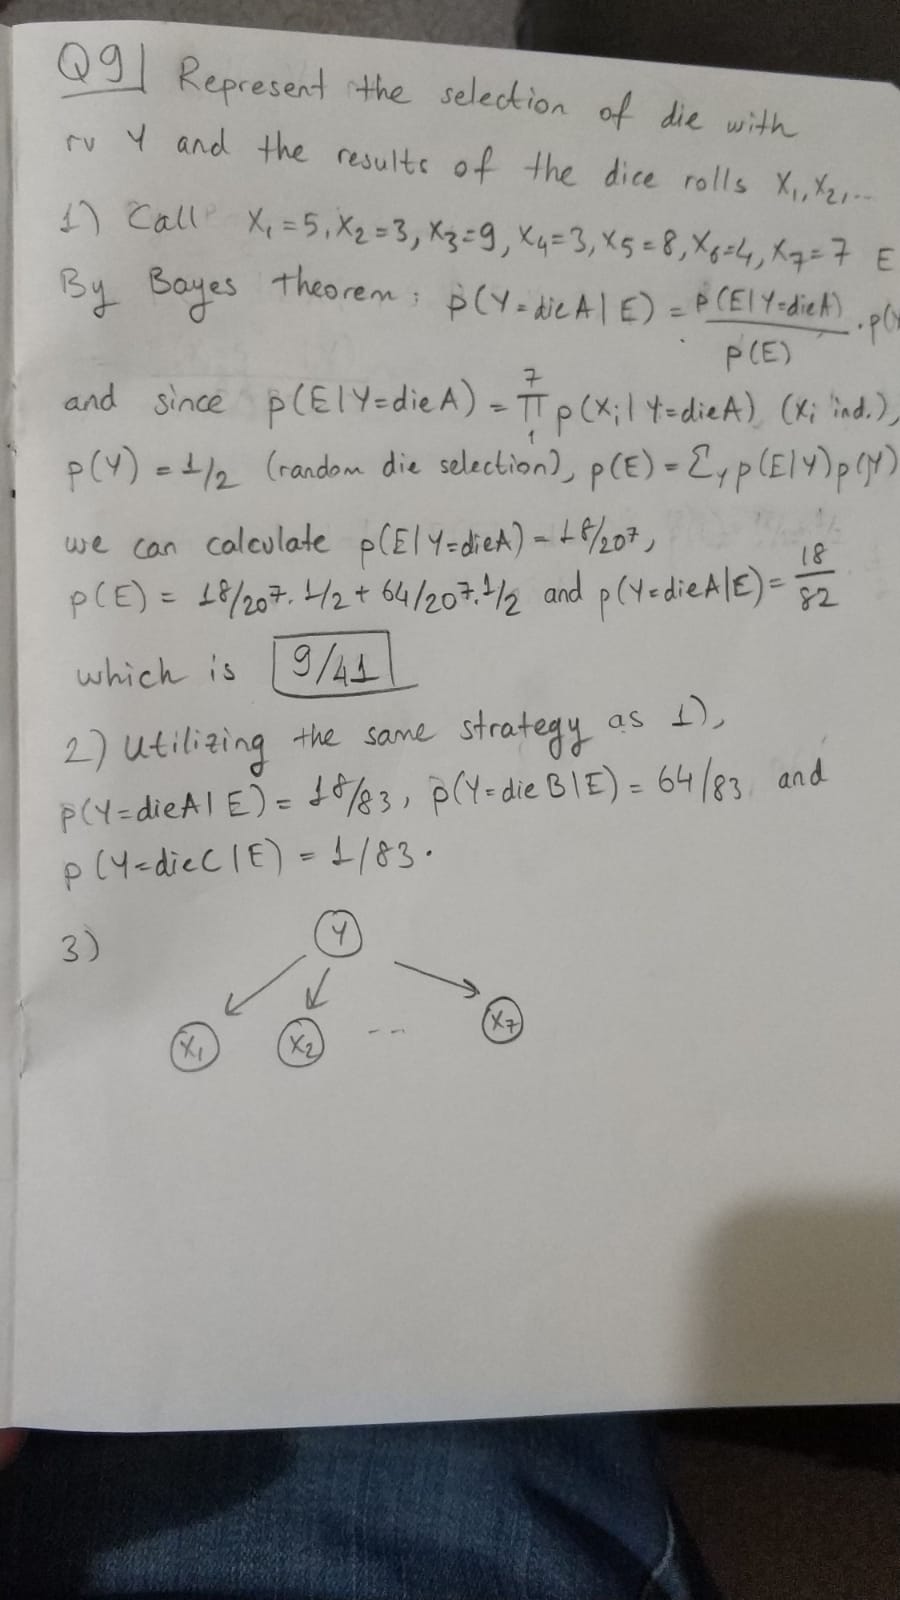 Q9| Represent the selection of die with
rv Y and the results of the dice rolls X₁, X₂, ...
1) Call X₁=5, X₂=3, X₃=9, X₄=3, X₅=8, X₆=4, X₇=7 E
By Bayes theorem: p(Y=dieA|E) = p(E|Y=dieA)/p(E) · p(Y
and since p(E|Y=dieA) = ∏₁⁷ p(Xᵢ|Y=dieA) (Xᵢ ind.),
p(Y) = 1/2 (random die selection), p(E) = Σ_Y p(E|Y)p(Y)
we can calculate p(E|Y=dieA) = 18/20⁷,
p(E) = 18/20⁷ · 1/2 + 64/20⁷ · 1/2 and p(Y=dieA|E) = 18/82
which is 9/41
2) Utilizing the same strategy as 1),
p(Y=dieA|E) = 18/83, p(Y=dieB|E) = 64/83 and
p(Y=dieC|E) = 1/83.
3) Y
X₁ X₂ -- X₇